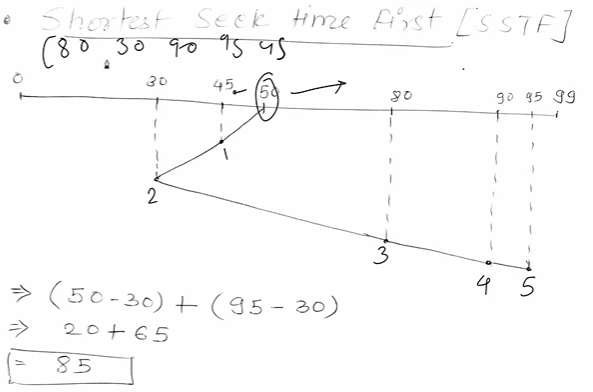 Shortest Seek time First [SSTF]
(80 30 90 95 45
0 30 45 50 80 90 95 99
1
2
3
4 5
⇒ (50-30) + (95-30)
⇒ 20+65
= 85